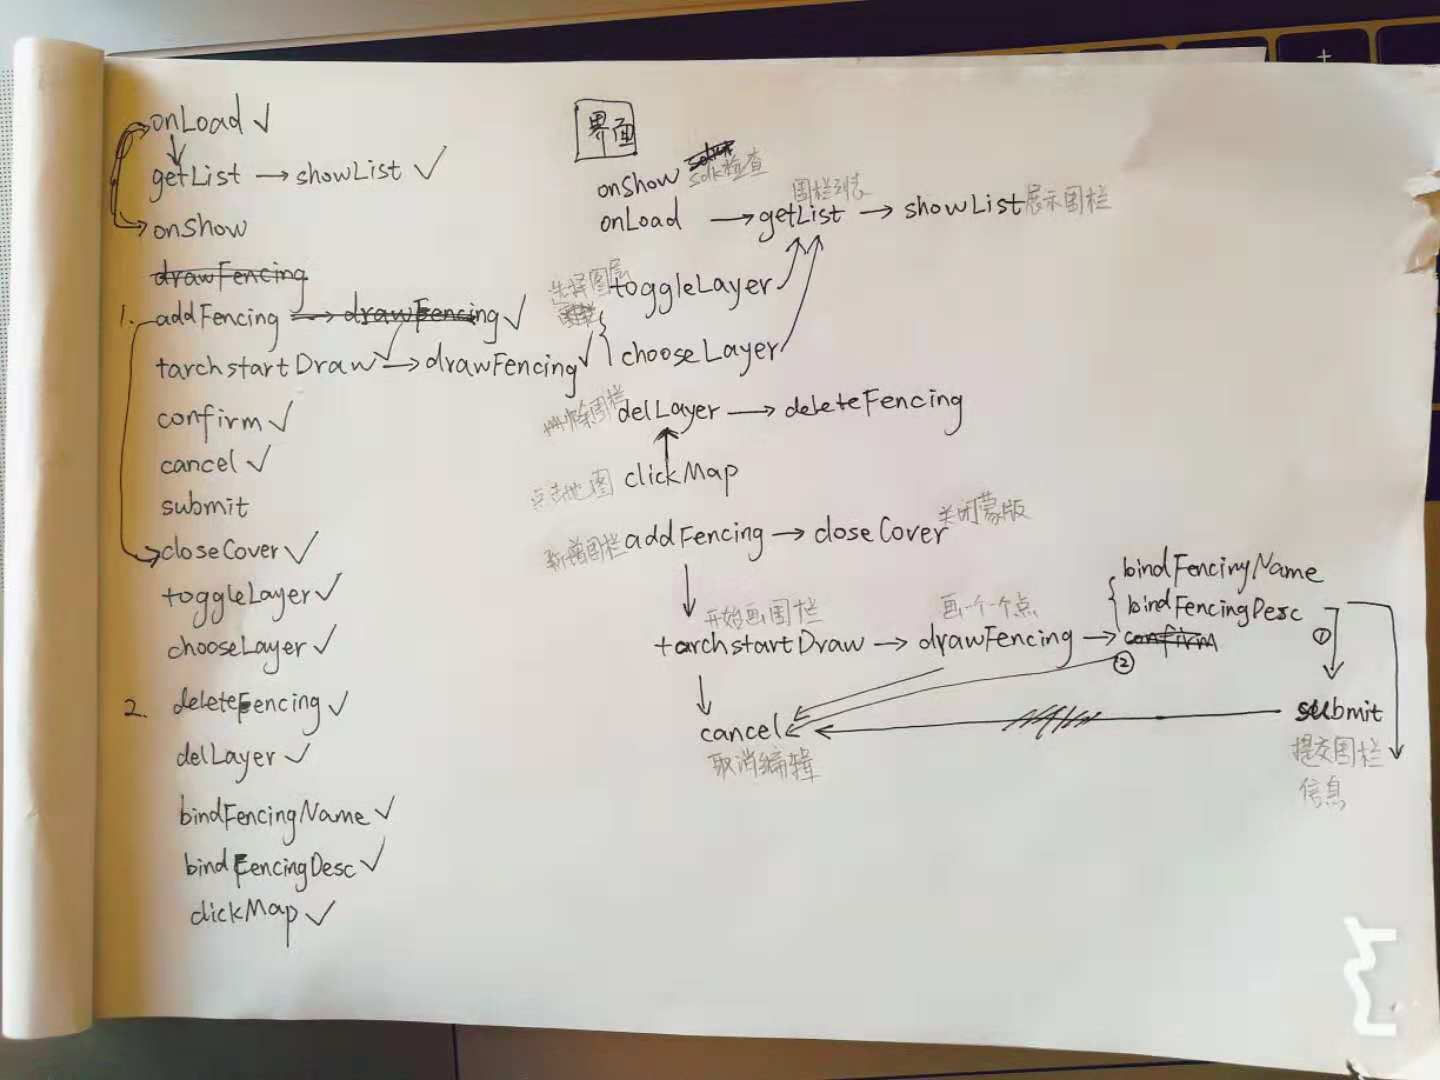 onLoad ✓
getList → showList ✓
onShow
drawFencing
1. addFencing → drawFencing ✓
tarchstartDraw ✓ → drawFencing ✓
confirm ✓
cancel ✓
submit
closeCover ✓
toggleLayer ✓
chooseLayer ✓
2. deleteFencing ✓
delLayer ✓
bindFencingName ✓
bindFencingDesc ✓
clickMap ✓
界面
onShow sdk检查
围栏列表
onLoad → getList → showList 展示围栏
选择图层 toggleLayer
chooseLayer
删除围栏 delLayer → deleteFencing
点击地图 clickMap
新增围栏 addFencing → closeCover 关闭蒙版
bindFencingName
开始画围栏 画一个个点 bindFencingDesc
tarchstartDraw → drawFencing → confirm ①
②
cancel submit
取消编辑 提交围栏
信息
+